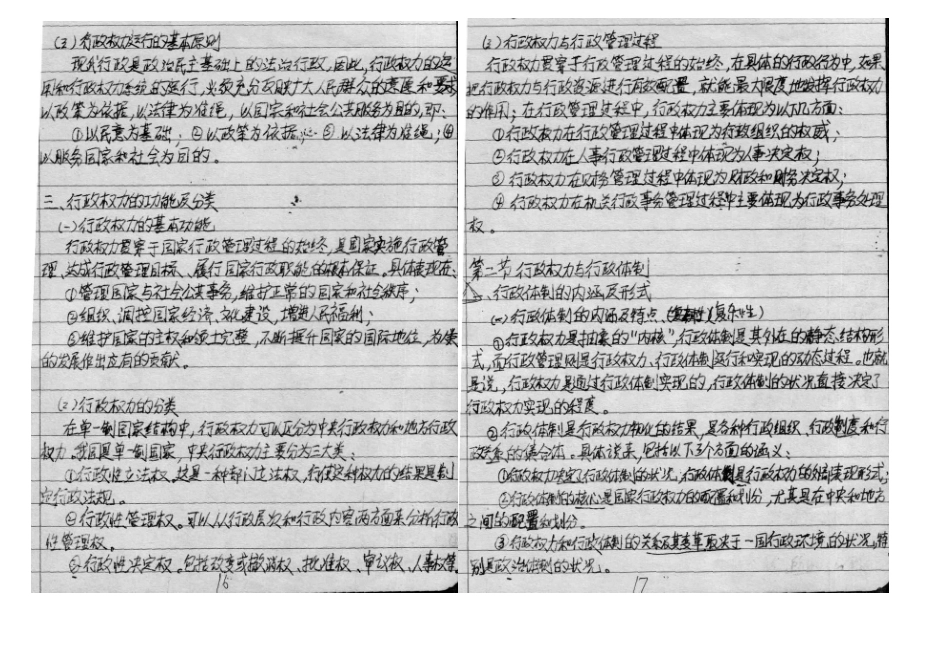 (三)行政权力运行的基本原则
现代行政是政治民主基础上的法治行政,因此,行政权力的运
用和行政权力系统的运行,必须充分反映大大人民群众的意愿和要求
以政策为依据,以法律为准绳,以国家和社会公共服务为目的,即:
①以民意为基础;②以政策为依据;③以法律为准绳;④
以服务国家和社会为目的。
三、行政权力的功能及分类
(一)行政权力的基本功能
行政权力贯穿于国家行政管理过程的始终,是国家实施行政管
理、达成行政管理目标、履行国家行政职能的根本保证。具体表现在:
①管理国家与社会公共事务,维护正常的国家和社会秩序;
②组织、调控国家经济、文化建设,增进人民福利;
③维护国家的主权和领土完整,不断提升国家的国际地位,为人类
的发展作出应有的贡献。
(二)行政权力的分类
在单一制国家结构中,行政权力可以区分为中央行政权力和地方行政
权力。我国是单一制国家,中央行政权力主要分为三大类:
①行政性立法权。这是一种部门立法权,行使这种权力的结果是制
定行政法规。
②行政性管理权。可以从行政层次和行政内容两方面来分析行政
性管理权。
③行政性决定权。包括改变或撤消权、批准权、审议权、人事权等
16
(三)行政权力与行政管理过程
行政权力贯穿于行政管理过程的始终,在具体的行政行为中,如果
把行政权力与行政资源进行有效配置,就能最大限度地发挥行政权力
的作用;在行政管理过程中,行政权力主要体现为以下几方面:
①行政权力在行政管理过程中体现为行政组织的权威;
②行政权力在人事行政管理过程中体现为人事决定权;
③行政权力在财务管理过程中体现为财政和财务决定权;
④行政权力在机关行政事务管理过程中主要体现为行政事务处理
权。
第二节 行政权力与行政体制
一、行政体制的内涵及形式
(一)行政体制的内涵及特点(复杂性)
①行政权力是抽象的"内核",行政体制是其外在的静态结构形
式,而行政管理则是行政权力、行政体制运行和实现的动态过程。也就
是说,行政权力是通过行政体制实现的,行政体制的状况直接决定了
行政权力实现的程度。
②行政体制是行政权力物化的结果,是各种行政组织、行政制度和行
政关系的集合体。具体说来,包括以下3个方面的涵义:
①行政权力决定了行政体制的状况,行政体制是行政权力的结构表现形式;
②行政体制的核心是国家行政权力的配置和划分,尤其是在中央和地方
之间的配置和划分。
③行政权力和行政体制的关系及其变革取决于一国行政环境的状况,特
别是政治体制的状况。
17